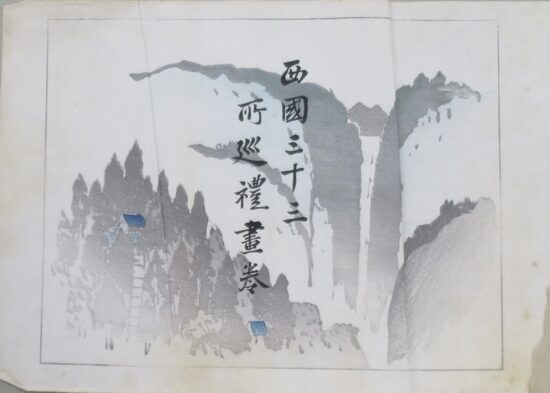 西國三十三
所巡禮畫卷